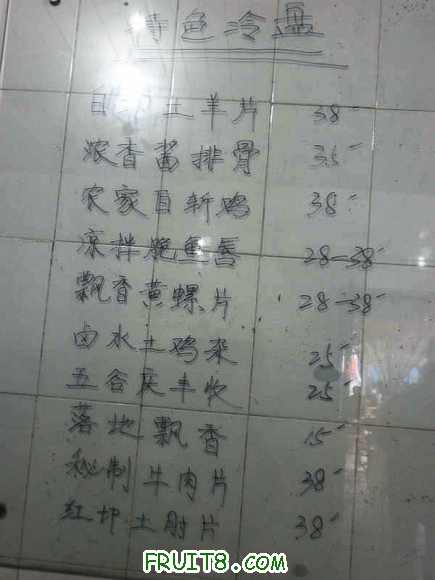 特色冷盘
白切土羊片 38
浓香酱排骨 35
农家白斩鸡 38
凉拌鲍鱼唇 28-38
飘香黄螺片 28-38
卤水土鸡杂 25
五谷庆丰收 25
落地飘香 15
秘制牛肉片 38
红切土肘片 38
FRUIT8.COM